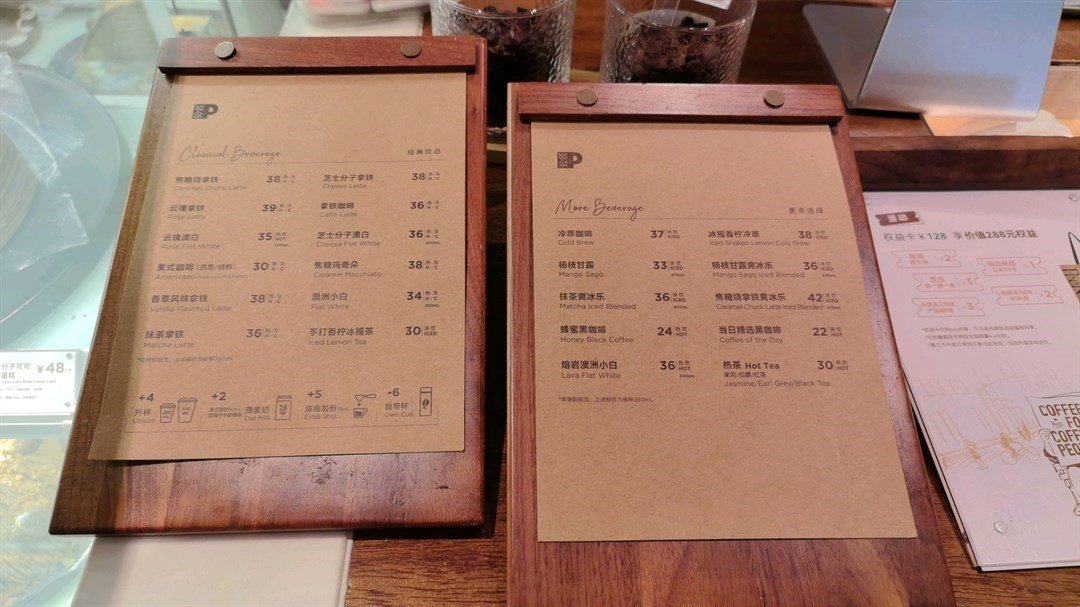 P
Classical Beverage 经典饮品
焦糖烧拿铁 38 热 冷 H/C 芝士分子拿铁 38 热 冷 H/C
Caramel Chunk Latte Cheese Latte
云瑰拿铁 39 热 冷 H/C 拿铁咖啡 36 热 冷 H/C
Rose Latte Caffè Latte
云瑰澳白 35 热饮 HOT 芝士分子澳白 36 热 冷 H/C 200mL
Rose Flat White Cheese Flat White
美式咖啡 30 热 冷 H/C 焦糖玛奇朵 38 热 冷 H/C
Americano Caramel Macchiato
香草风味拿铁 38 热 冷 H/C 澳洲小白 34 热 冷 H/C 200mL
Vanilla Flavored Latte Flat White
抹茶拿铁 36 热 冷 H/C 手打香柠冰摇茶 30 冰饮 ICED
Matcha Latte Iced Lemon Tea
*如非特别标注，上述标价为省杯350mL
+4 +2 +5 -6
升杯 燕麦奶 浓缩加份 自带杯
Upsize Oat Milk Extra Shot Own Cup
P
More Beverage 更多选择
冷萃咖啡 37 冰饮 ICED 冰摇香柠冷萃 38 冰饮 ICED
Cold Brew Iced Shaken Lemon Cold Brew
杨枝甘露 33 冰饮 ICED 470mL 杨枝甘露爽冰乐 36 冰饮 ICED 470mL
Mango Sago Mango Sago Iced Blended
抹茶爽冰乐 36 冰饮 ICED 470mL 焦糖烧拿铁爽冰乐 42 冰饮 ICED 470mL
Matcha Iced Blended Caramel Chunk Latte Iced Blended
蜂蜜黑咖啡 24 热饮 HOT 当日精选黑咖啡 22 热饮 HOT
Honey Black Coffee Coffee of the Day
熔岩澳洲小白 36 热饮 HOT 200mL 热茶 Hot Tea 30 热饮 HOT
Lava Flat White 茉莉/伯爵/红茶
Jasmine/Earl Grey/Black Tea
活动
权益卡￥128 享价值288元权益
×2
×1
×3
×2
×3
COFFEE
FO
COFF
PEO
分子可可
蛋糕
￥48